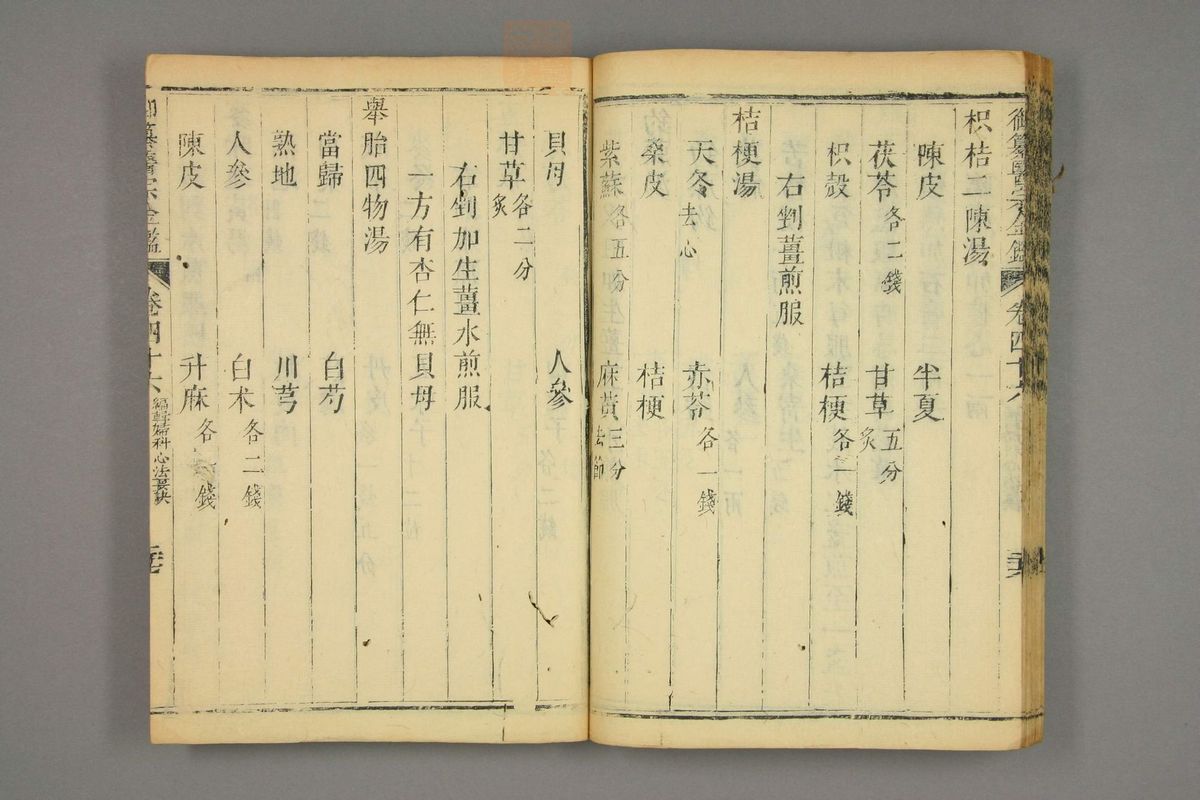 御纂醫宗金鑑 卷四十六
枳桔二陳湯
陳皮 半夏
茯苓各二錢 甘草炙五分
枳殼 桔梗各一錢
右剉薑煎服
桔梗湯
天冬去心 赤苓各一錢
桑皮 桔梗
紫蘇各五分 麻黃去節三分
貝母 人參
甘草炙各二分
右剉加生薑水煎服
一方有杏仁無貝母
舉胎四物湯
當歸 白芍
熟地 川芎
人參 白朮各二錢
陳皮 升麻各一錢
御纂醫宗金鑑 卷四十六 編輯婦科心法要訣